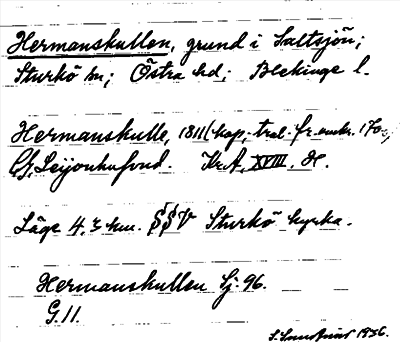 Hermanskullen, grund i Saltsjön;
Sturkö sn; Östra hd; Blekinge l.
Hermanskulle, 1811 (kop. trol. fr. omkr. 1700,
Cf. Leijonhufvud. Kr.A. XVIII. H.
Läge 4.3 km. SSV Sturkö kyrka.
Hermanskullen Sj. 96.
G.11.
1936.